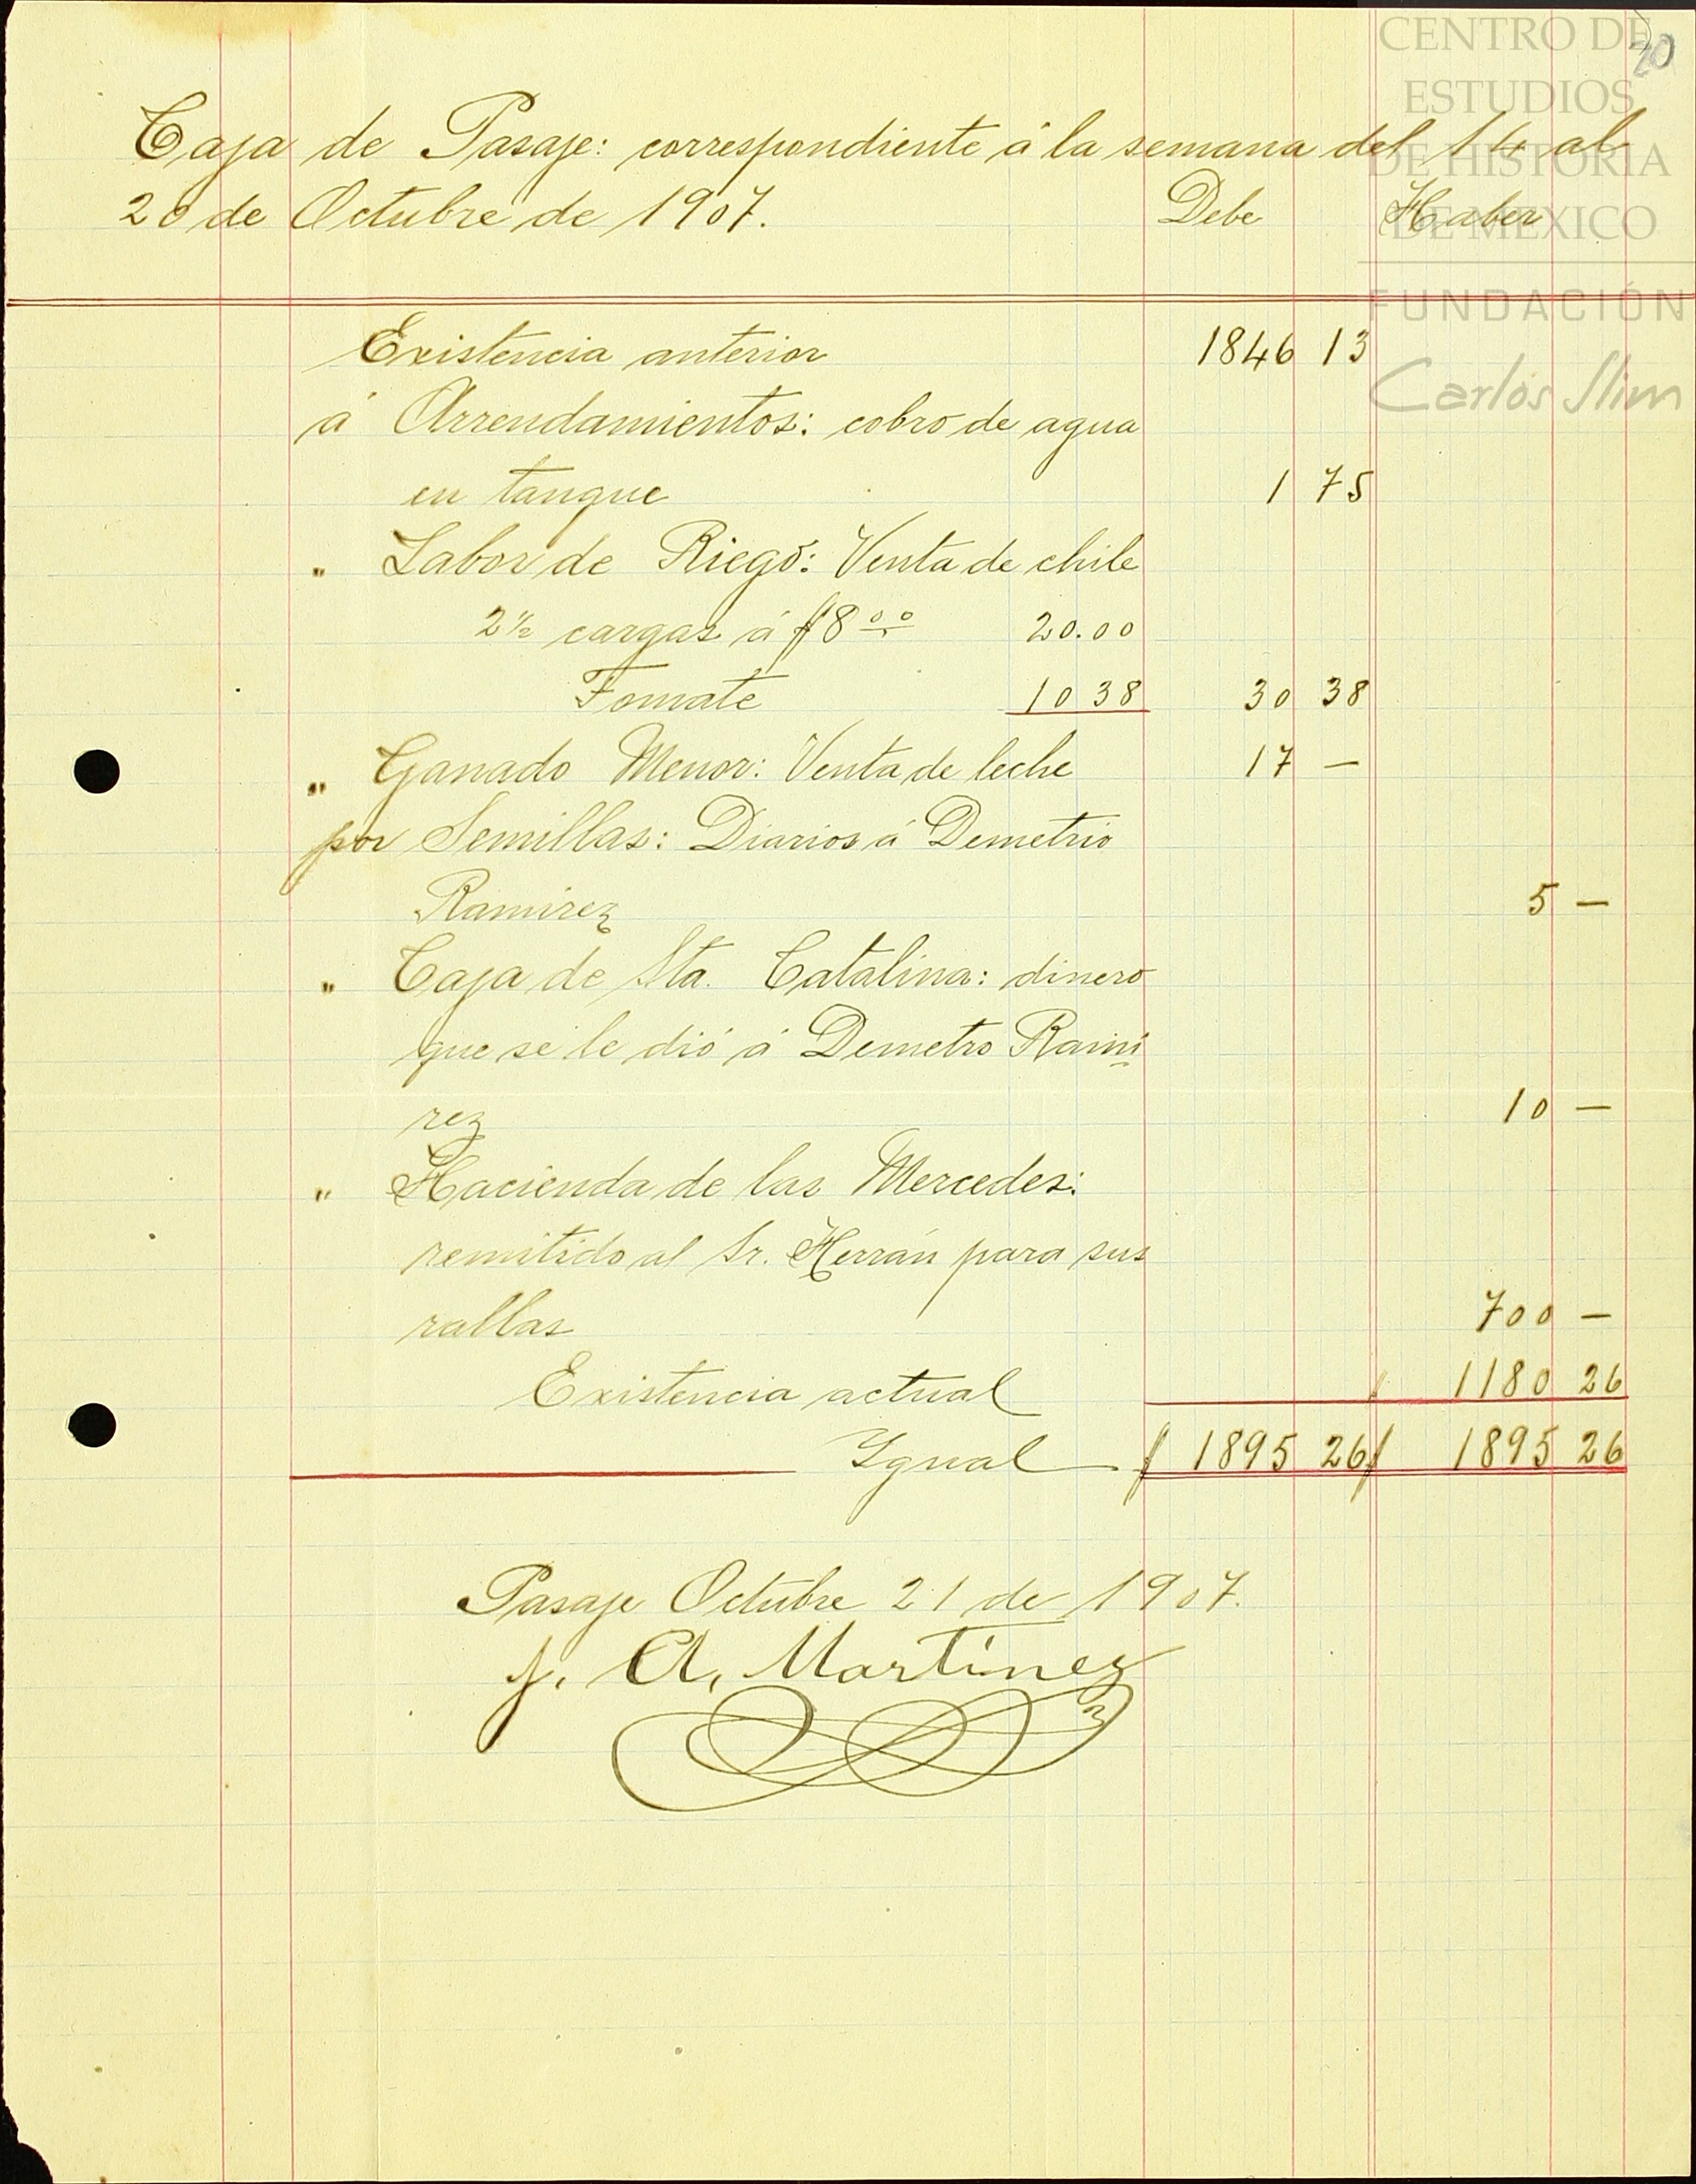 CENTRO DE
ESTUDIOS
DE HISTORIA
DE MEXICO
FUNDACIÓN
Carlos Slim
Caja de Pasaje: correspondiente á la semana del 14 al
20 de Octubre de 1907. Debe Haber
Existencia anterior 1846 13
á Arrendamientos: cobro de agua
en tanque 1 75
" Labor de Riego: Venta de chile
2½ cargas á $8 00 20.00
Tomate 10 38 30 38
" Ganado Menor: Venta de leche 17 —
por Semillas: Diarios á Demetrio
Ramirez 5 —
" Caja de Sta. Catalina: dinero
que se le dió á Demetro Rami
rez 10 —
" Hacienda de las Mercedes:
remitido al Sr. Herrán para sus
rallas 700 —
Existencia actual 1180 26
Ygual $ 1895 26 $ 1895 26
Pasaje Octubre 21 de 1907.
J. A. Martínez